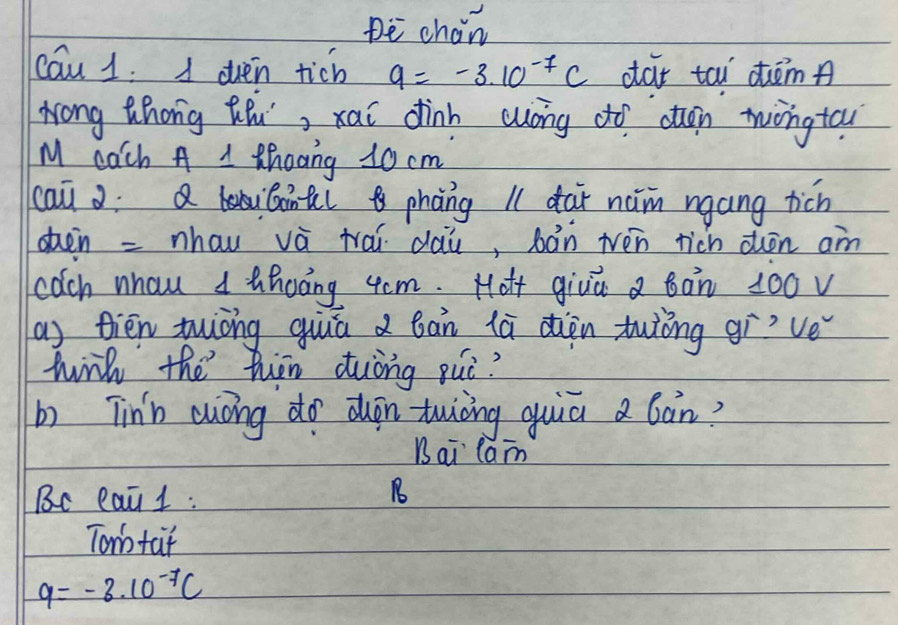 Đề chẵn
Câu 1: 1 điện tích q = -3.10⁻⁷ C đặt tại điểm A
trong không khí, xác định cường độ điện trường tại
M cách A 1 khoảng 10 cm
Câu 2: 2 bản kl phẳng // đặt nằm ngang tích
điện = nhau và trái dấu, bản trên tích điện âm
cách nhau 1 khoảng 4cm. Hđt giữa 2 bản 100 V
a) Điện trường giữa 2 bản là điện trường gì? Vẽ
hình thể hiện đường sức?
b) Tính cường độ điện trường giữa 2 bản?
Bài làm
Câu 1:
Tóm tắt
q = -3.10⁻⁷C